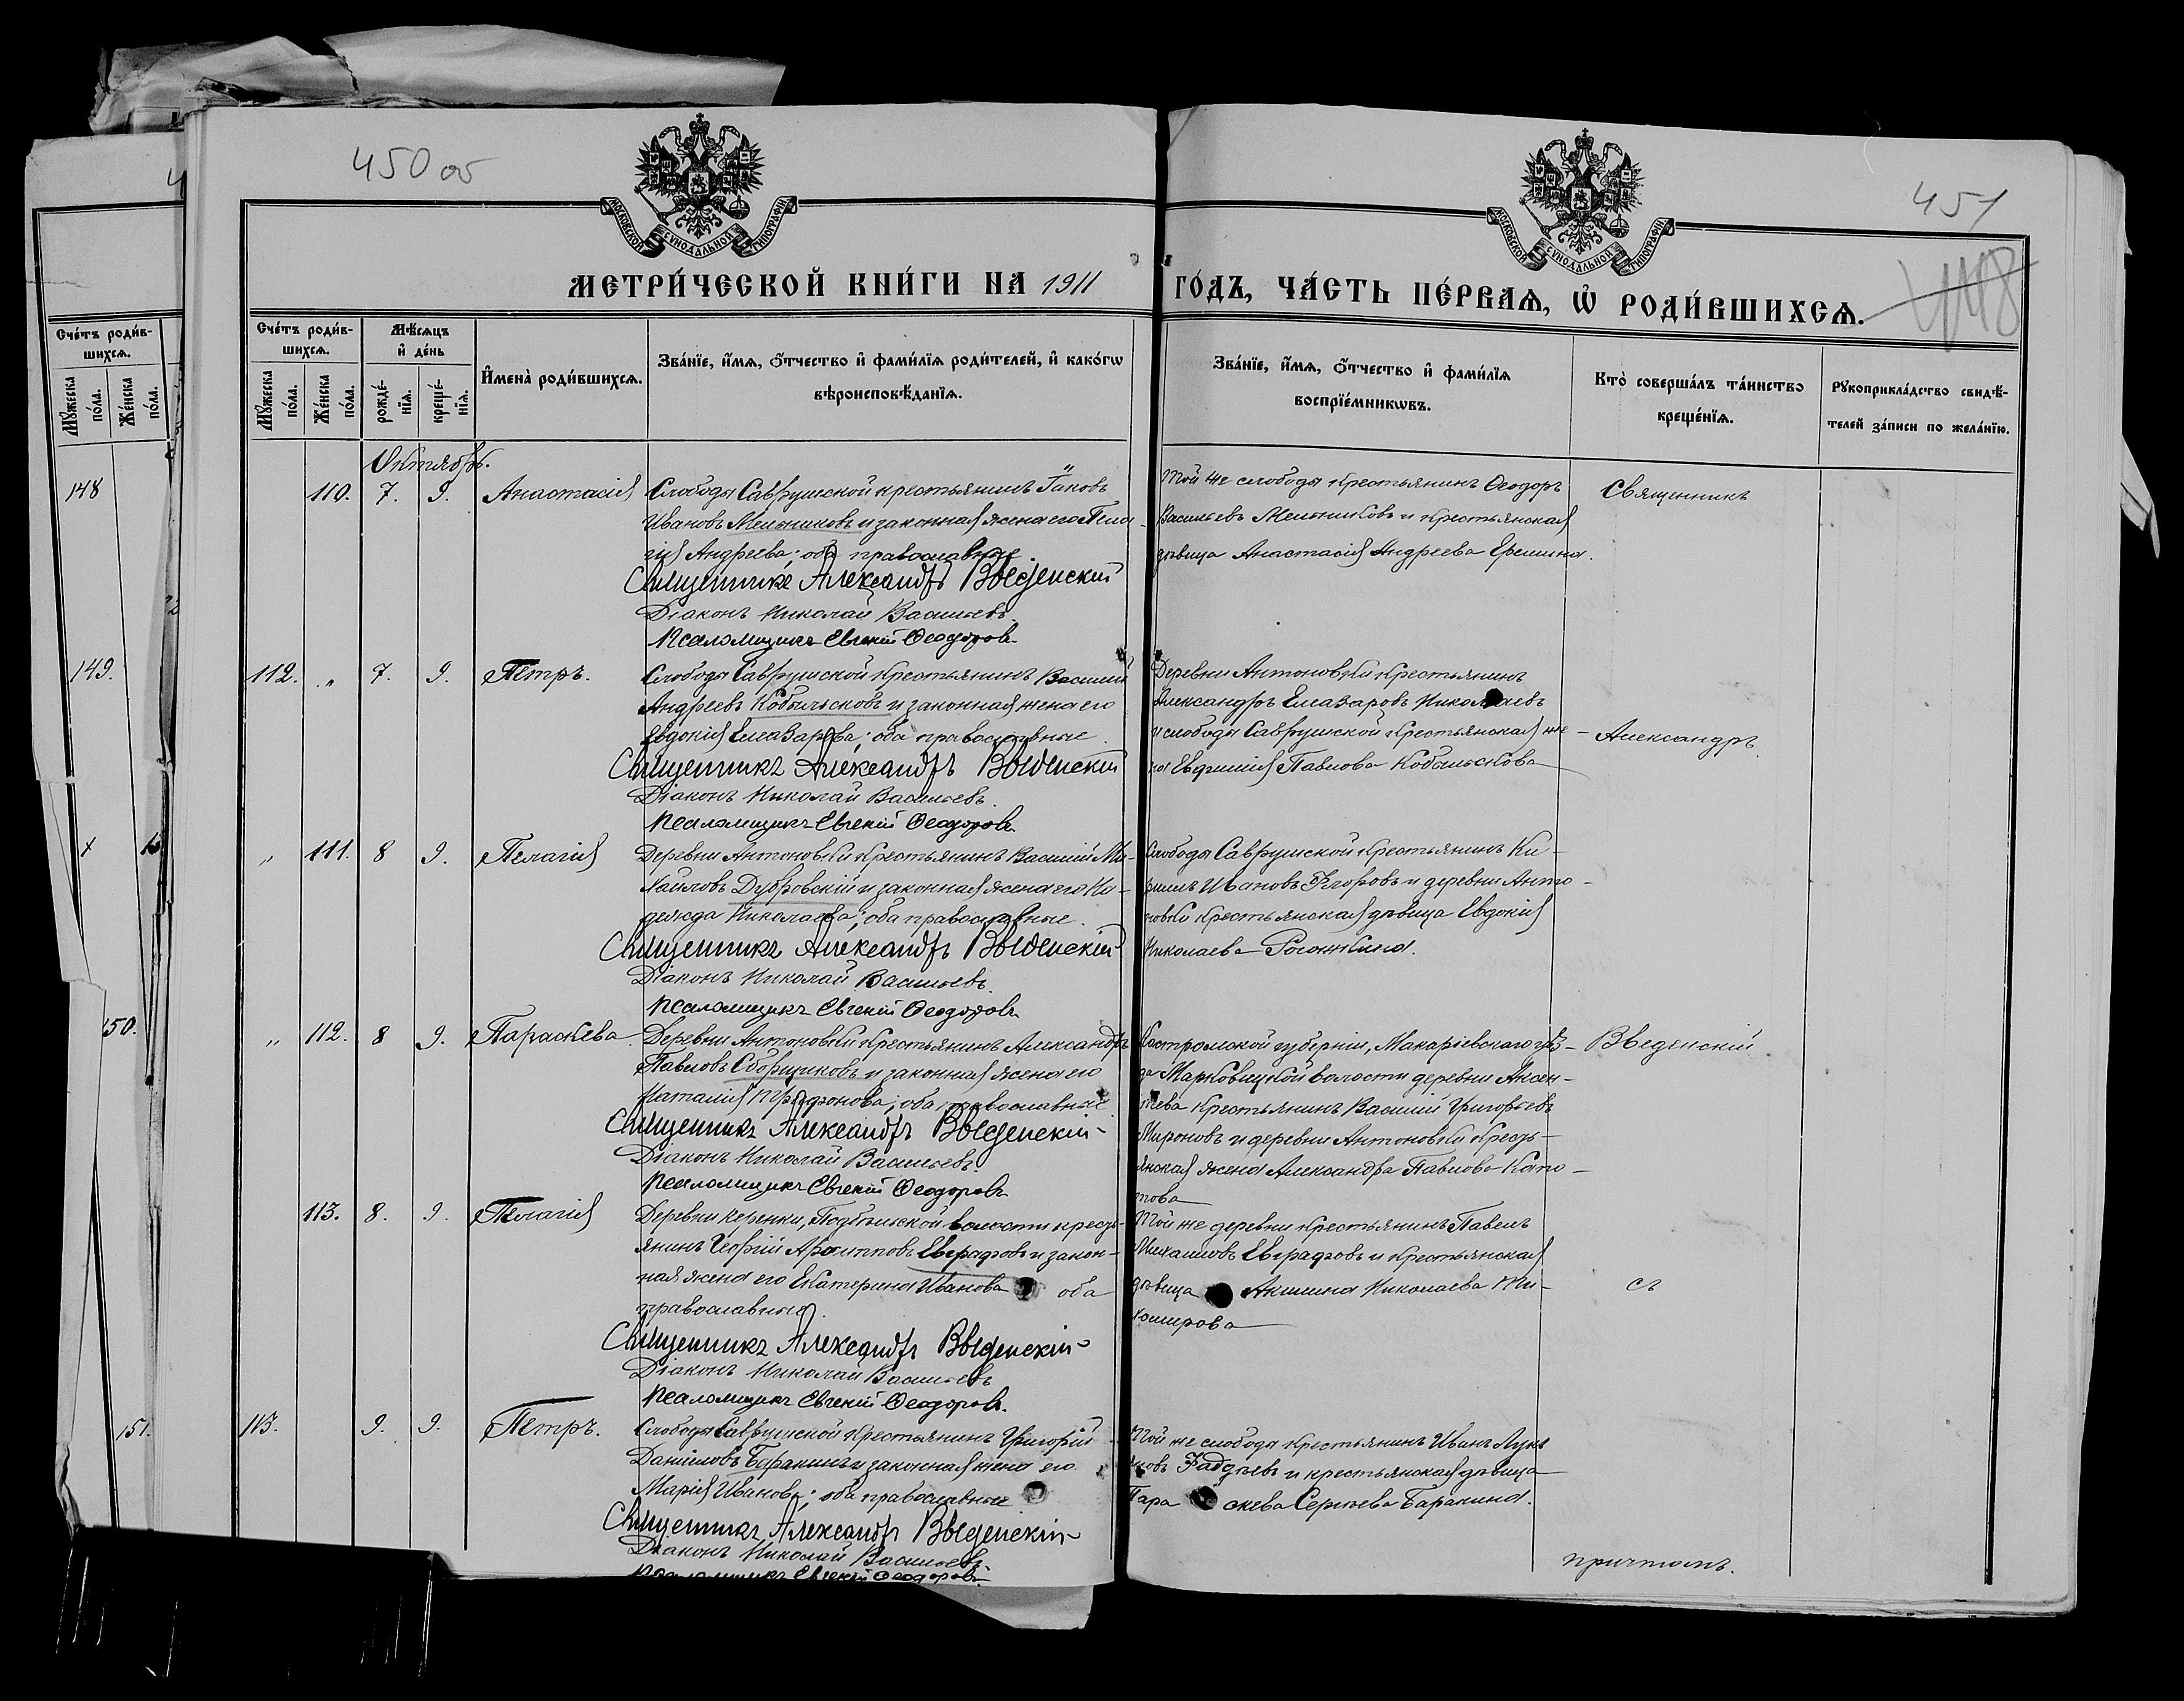 450 об
451
448
МОСКОВСКОЙ СУНОДАЛЬНОЙ ТИПОГРАФІИ
МОСКОВСКОЙ СУНОДАЛЬНОЙ ТИПОГРАФІИ
МЕТРИ́ЧЕСКОЙ КНИ́ГИ НА 1911 ГО́ДЪ, ЧА́СТЬ ПЕ́РВАѦ, Ѽ РОДИ́ВШИХСѦ.
Сче́тъ роди́в-
шихсѧ.
Мꙋ́жеска по́ла.
Же́нска по́ла.
Сче́тъ роди́в-
шихсѧ.
Мꙋ́жеска по́ла.
Же́нска по́ла.
Мѣ́сѧцъ и҆ де́нь
рожде́-нїѧ.
креще́-нїѧ.
И҆мена̀ роди́вшихсѧ.
Зва́нїе, и҆́мѧ, ѻ҆́тчество и҆ фами́лїѧ роди́телей, и҆ како́гѡ
вѣроисповѣ́данїѧ.
Зва́нїе, и҆́мѧ, ѻ҆́тчество и҆ фами́лїѧ
воспрїе́мникѡвъ.
Кто̀ соверша́лъ та́инство
креще́нїѧ.
Рꙋкоприкла́дство свидѣ́-
телей за́писи по жела́нїю.
148
149.
150.
151.
Октябрь.
110. 7. 9. Анастасія
Слободы Саврушской крестьянинъ Іаковъ
Ивановъ Мельниковъ и законная жена его Пела-
гія Андреева; оба православные.
Священникъ Александръ Введенскій
Діаконъ Николай Васильевъ.
Псаломщикъ Евгеній Ѳеодоровъ.
Той же слободы крестьянинъ Ѳеодоръ
Васильевъ Мельниковъ и крестьянская
дѣвица Анастасія Андреева Еремина.
Священникъ
112. „ 7. 9. Петръ.
Слободы Саврушской крестьянинъ Василий
Андреевъ Кобыльсковъ и законная жена его
Евдокія Елеазарова; оба православные.
Священникъ Александръ Введенскій
Діаконъ Николай Васильевъ.
Псаломщикъ Евгеній Ѳеодоровъ.
Деревни Антоновки крестьянинъ
Александръ Елеазаровъ Николаевъ
и слободы Саврушской крестьянская же-
на Евдокія Павлова Кобыльскова
Александръ
„ 111. 8 9. Пелагія
Деревни Антоновки крестьянинъ Василій Ми-
хайловъ Дубровскій и законная жена его На-
дежда Николаева; оба православные.
Священникъ Александръ Введенскій
Діаконъ Николай Васильевъ.
Псаломщикъ Евгеній Ѳеодоровъ
Слободы Саврушской крестьянинъ Ки-
риллъ Ивановъ Егоровъ и деревни Анто-
новки крестьянская дѣвица Евдокія
Николаева Рогожкина.
„ 112. 8 9. Параскева
Деревни Антоновки крестьянинъ Александръ
Павловъ Сборщиковъ и законная жена его
Наталія Трифонова; оба православные.
Священникъ Александръ Введенскій
Діаконъ Николай Васильевъ.
Псаломщикъ Евгеній Ѳеодоровъ
Костромской губерніи, Макаріевскаго уѣз-
да Марковицкой волости деревни Аксен-
тьева крестьянинъ Василій Григорьевъ
Мироновъ и деревни Антоновки кресть-
янская жена Александра Павлова Капи-
това
Введенскій
113. 8. 9. Пелагія
Деревни Керенки, Подбѣльской волости кресть-
янинъ Георгій Архипповъ Евграфовъ и закон-
ная жена его Екатерина Иванова оба
православные.
Священникъ Александръ Введенскій
Діаконъ Николай Васильевъ
Псаломщикъ Евгеній Ѳеодоровъ.
Той же деревни крестьянинъ Павелъ
Михаиловъ Евграфовъ и крестьянская
дѣвица Акилина Николаева Ти-
хомирова
съ
113. 9. 9. Петръ.
Слободы Саврушской крестьянинъ Григорій
Даніиловъ Баракинъ и законная жена его
Марія Иванова; оба православные
Священникъ Александръ Введенскій
Діаконъ Николай Васильевъ.
Псаломщикъ Евгеній Ѳеодоровъ.
Той же слободы крестьянинъ Иванъ Лукь
яновъ Фаддѣевъ и крестьянская дѣвица
Пара скева Сергѣева Баракина.
причтомъ.